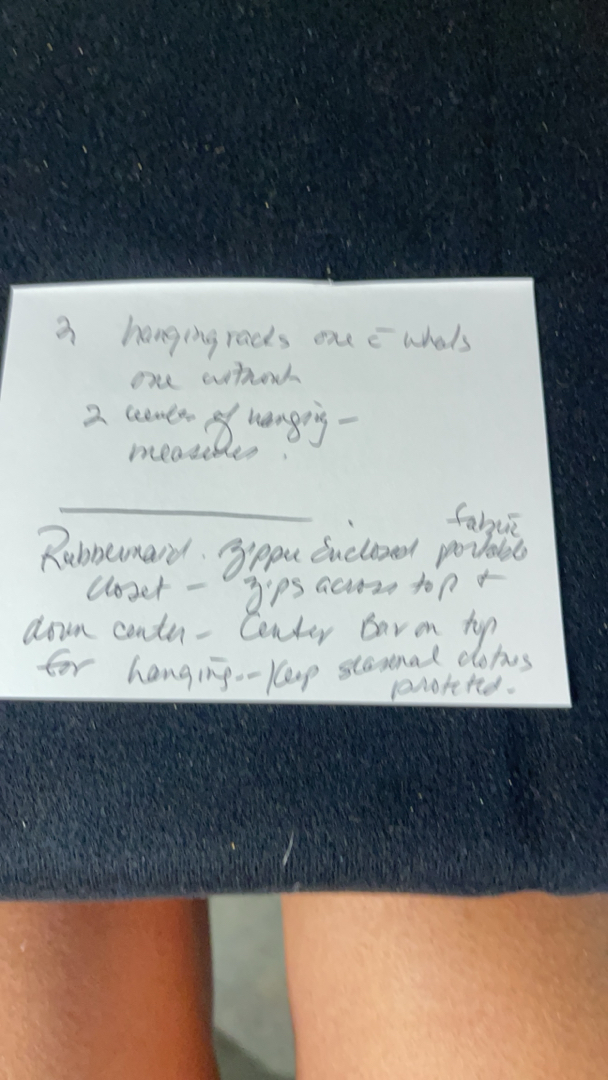 2 hanging racks one c̄ whels
one without
2 of hanging –
measures.
Rubbermaid. Zipper Enclosed fabric portable
closet – zips across top +
down center – Center Bar on top
for hanging.. – Keep seasonal clothes
protected.